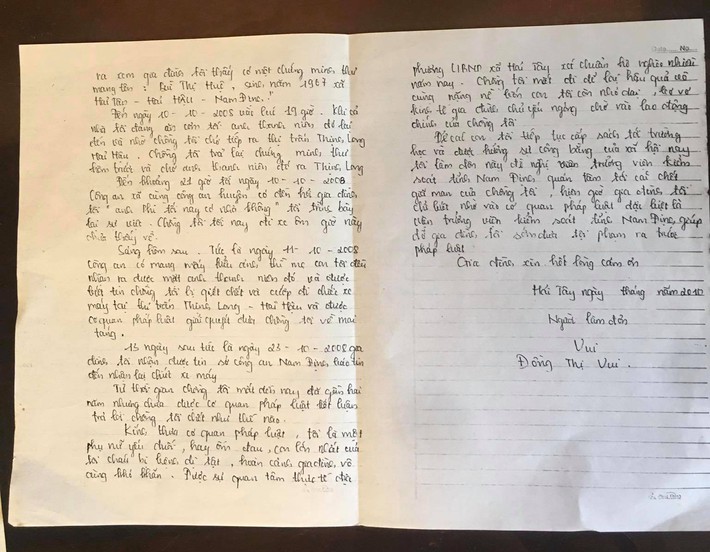 ra xem gia đình tôi thấy có một chứng minh thư
mang tên: Bùi Thị Huệ, sinh năm 1967 xã
Hải Tân - Hải Hậu - Nam Định."
Đến ngày 10-10-2008 vào lúc 19 giờ. Khi cả
nhà tôi đang ăn cơm tối anh thanh niên đó lại
đến và nhờ chồng tôi chở tiếp ra thị trấn Thịnh Long
Hải Hậu. Chồng tôi trả lại chứng minh thư
hôm trước và chở anh thanh niên đó ra Thịnh Long
Đến khoảng 21 giờ tối ngày 10-10-2008
Công an xã cùng công an huyện có đến hỏi gia đình
tôi "anh Phi tối nay có nhà không" tôi trình bày
lại sự việc. Chồng tôi tối nay đi xe ôm giờ này
chưa thấy về.
Sáng hôm sau. Tức là ngày 11-10-2008
Công an có mang mấy kiểu ảnh thì mẹ con tôi đều
nhận ra được một anh thanh niên đó và được
biết tin chồng tôi bị giết chết và cướp đi chiếc xe
máy tại thị trấn Thịnh Long - Hải Hậu và được
cơ quan pháp luật giải quyết đưa chồng tôi về mai
táng.
13 ngày sau tức là ngày 23-10-2008 gia
đình tôi nhận được tin sở công an Nam Định báo tin
đến nhận lại chiếc xe máy
Từ thời gian chồng tôi mất đến nay đã gần hai
năm nhưng chưa được cơ quan pháp luật kết luận
trả lời chồng tôi chết như thế nào.
Kính thưa cơ quan pháp luật, tôi là một
phụ nữ yếu đuối, hay ốm đau, con lớn nhất của
tôi cháu bị liệng dị tật, hoàn cảnh gia đình vô
cùng khó khăn. Được sự quan tâm thực tế địa
phương UBND xã Hải Tây xã chuẩn hộ nghèo nhiều
năm nay. Chồng tôi mất đi để lại hậu quả vô
cùng nặng nề bốn con tôi còn nhỏ dại,
kinh tế gia đình chủ yếu ngóng chờ vào lao động
chính của chồng tôi
Để các con tôi tiếp tục cắp sách tới trường
học và được hưởng sự công bằng của xã hội nay
tôi làm đơn này đề nghị viện trưởng viện kiểm
soát tỉnh Nam Định quan tâm tới cái chết
của chồng tôi, hiện giờ gia đình tôi
chỉ biết nhờ vào cơ quan pháp luật đặc biệt là
viện trưởng viện kiểm soát tỉnh Nam Định giúp
đỡ gia đình tôi sớm đưa tội phạm ra trước
pháp luật.
Gia đình xin hết lòng cảm ơn
Hải Tây ngày tháng năm 2010
Người làm đơn
Vui
Đồng Thị Vui.